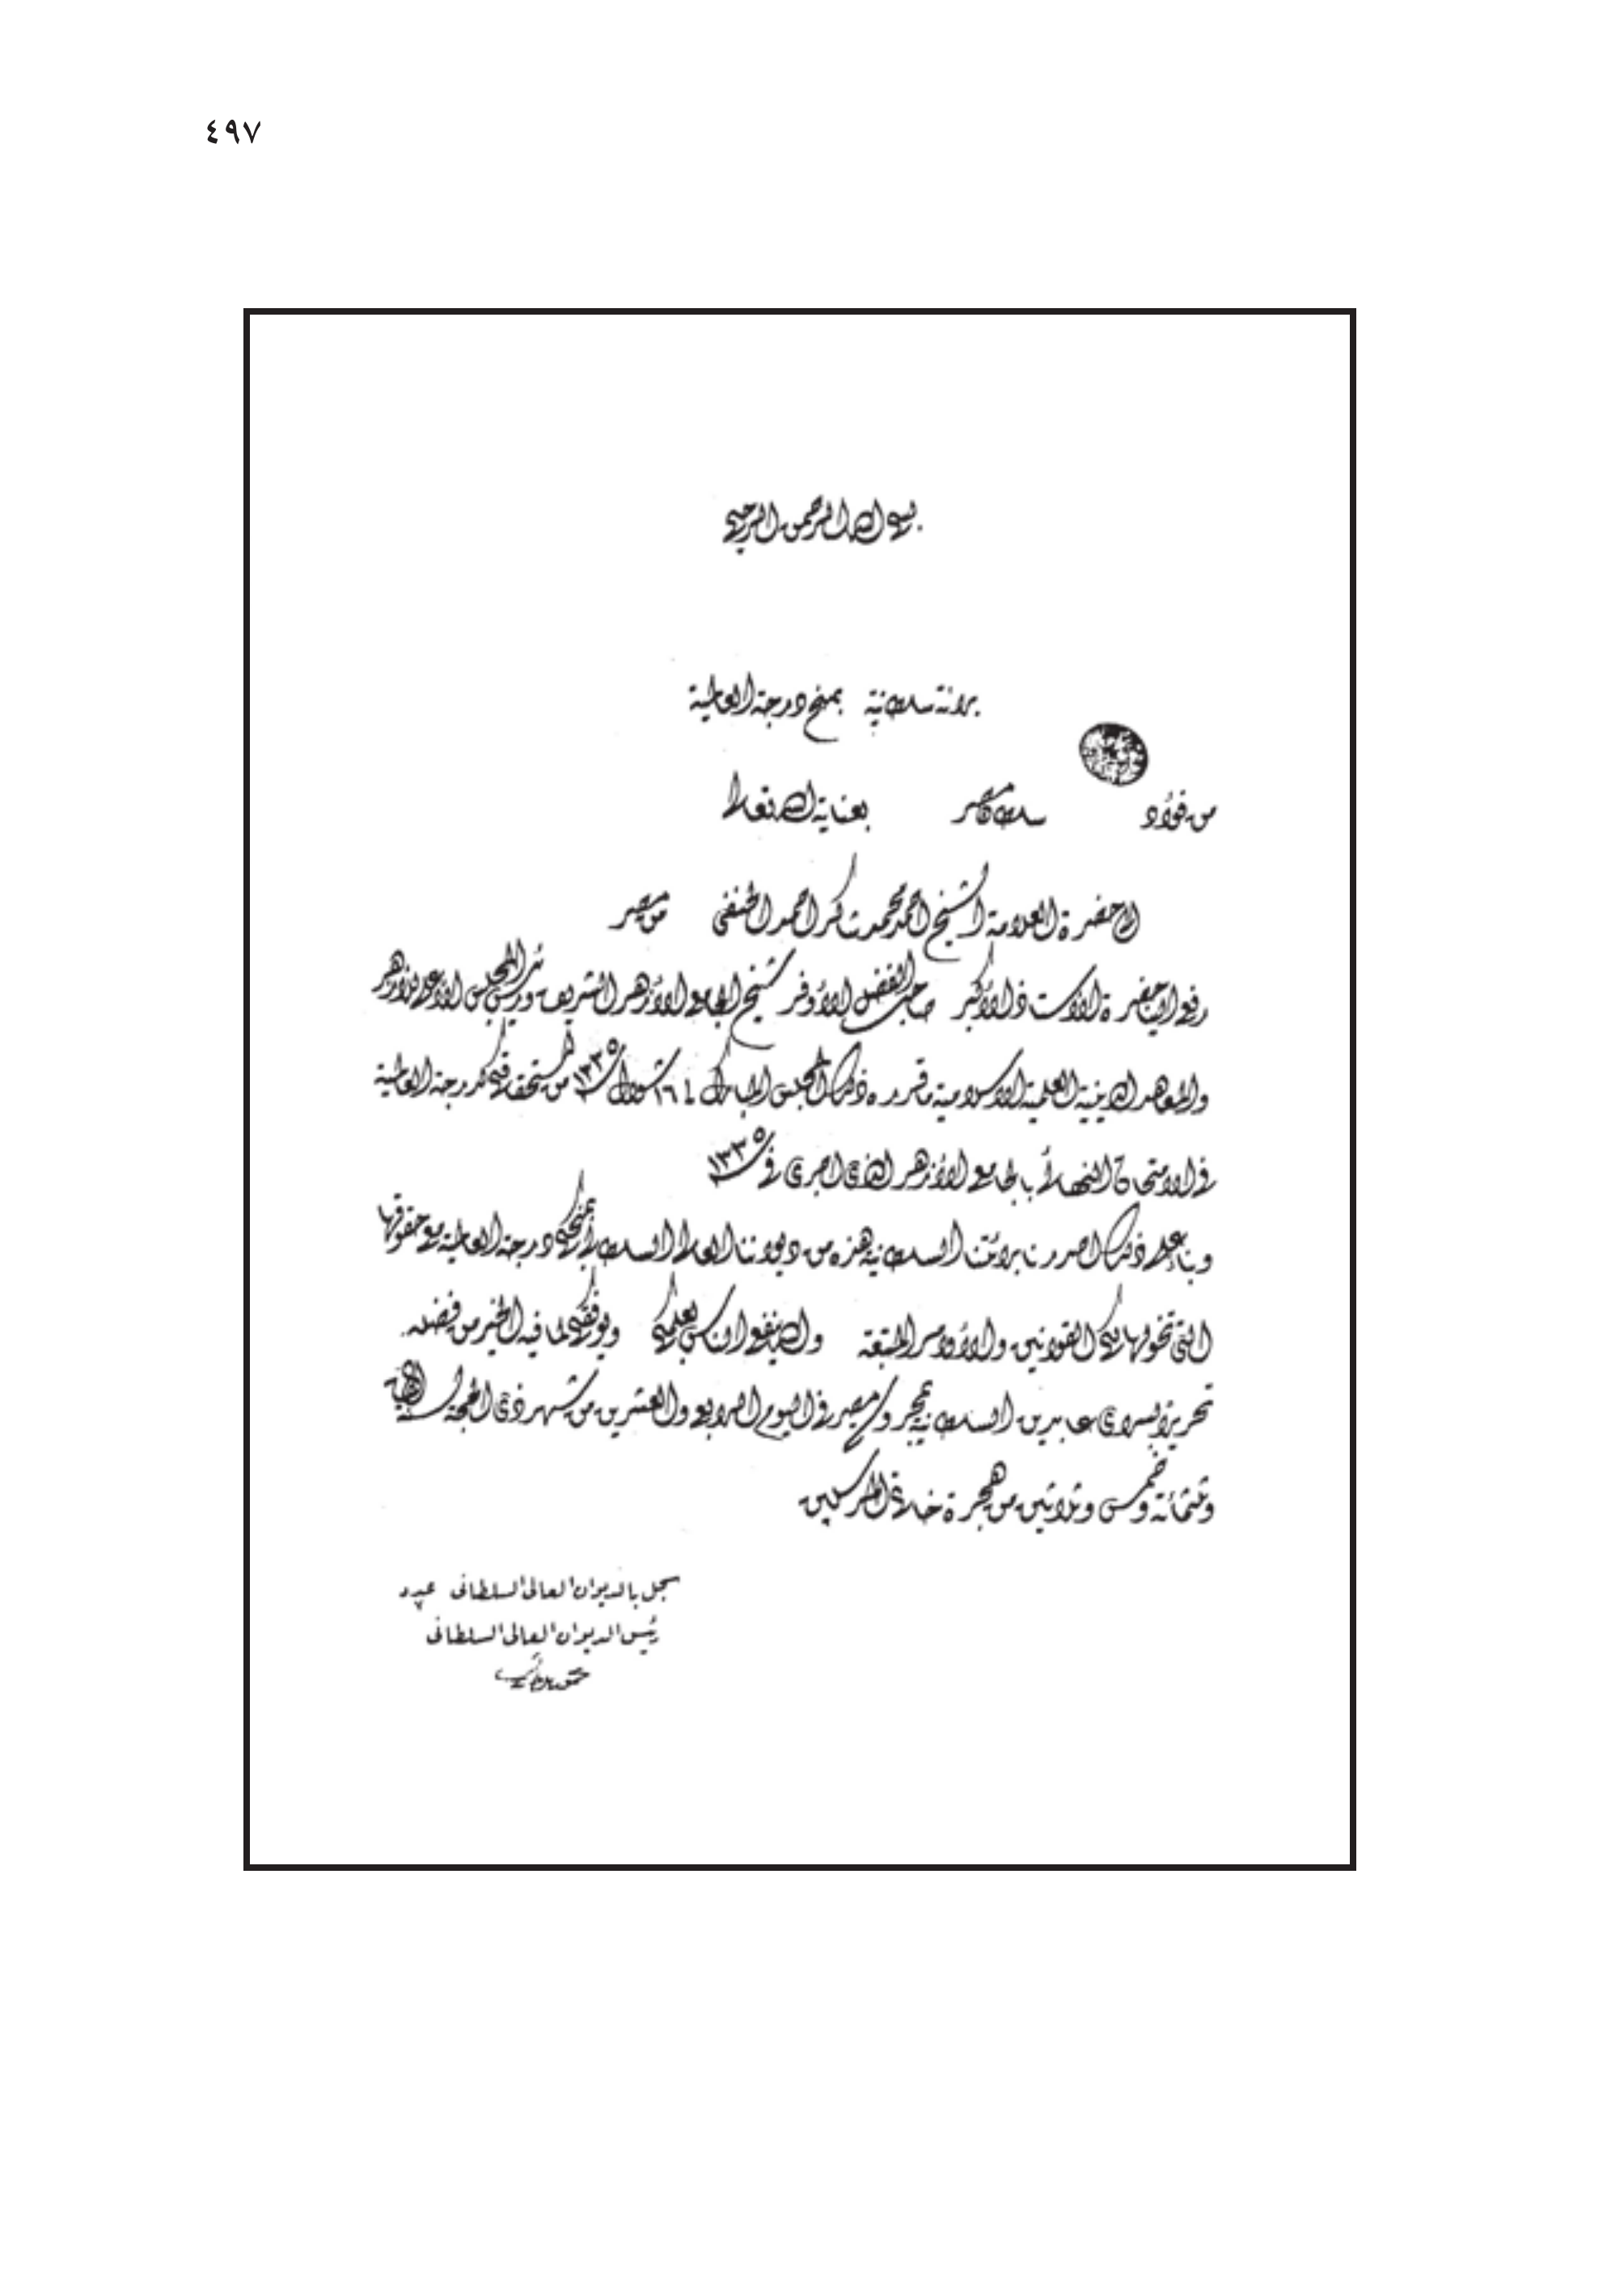 ٤٩٧
بسم الله الرحمن الرحيم
براءة سلطانية بمنح درجة العالمية
من فؤاد سلطان مصر بعناية الله تعالى
إلى حضرة العلامة الشيخ أحمد محمد شاكر أحمد الحنفي من مصر
رفع إلينا حضرة الأستاذ الأكبر صاحب الفضل الأوفر شيخ الجامع الأزهر الشريف ورئيس المجلس الأعلى للأزهر
والمعاهد الدينية العلمية الإسلامية ما قرره ذلك المجلس المبارك في ١٦ شوال سنة ١٣٣٥ من استحقاقكم درجة العالمية
في الامتحان النهائي بالجامع الأزهر الذي أجرى في سنة ١٣٣٥
وبناء على ذلك أصدرنا براءتنا السلطانية هذه من ديواننا العالي السلطاني بمنحكم درجة العالمية مع حقوقها
التي تخولها لكم القوانين والأوامر المتبعة والله ينفع الناس بعلمكم ويوفقكم لما فيه الخير من فضله
تحريرا بسراي عابدين السلطانية بمحروسة مصر في اليوم الرابع والعشرين من شهر ذي الحجة لسنة ألف
وثلثمائة وخمس وثلاثين من هجرة خاتم المرسلين
سجل بالديوان العالى السلطانى عدد ٧
رئيس الديوان العالى السلطانى